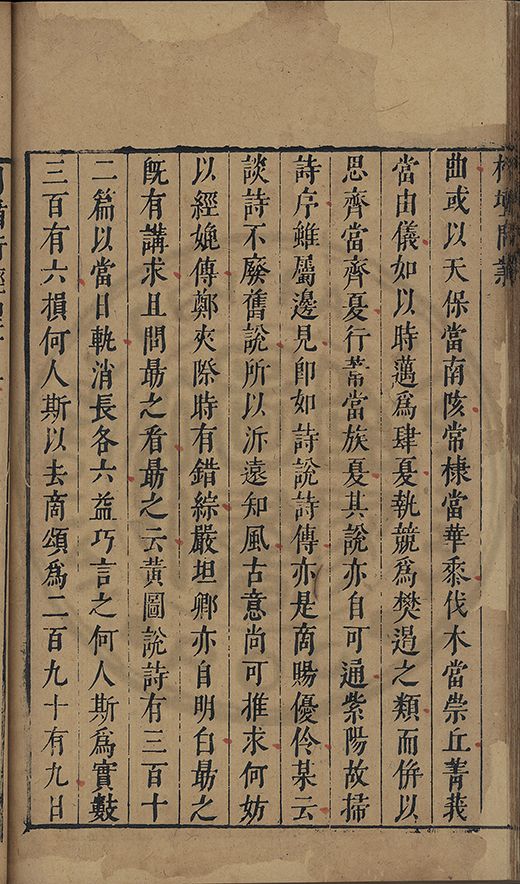 榕壇問業
曲或以天保當南陔常棣當華黍伐木當崇丘菁莪
當由儀如以時邁爲肆夏執競爲樊遏之類而倂以
思齊當齊夏行葦當族夏其說亦自可通紫陽故掃
詩序雖屬邊見卽如詩說詩傳亦是商賜優伶某云
談詩不廢舊說所以泝遠知風古意尚可推求何妨
以經娩傳鄭夾漈時有錯綜嚴坦卿亦自明白最之
旣有講求且問最之看最之云黃圖說詩有三百十
二篇以當日軌消長各六益巧言之何人斯爲實數
三百有六損何人斯以去商頌爲二百九十有九日